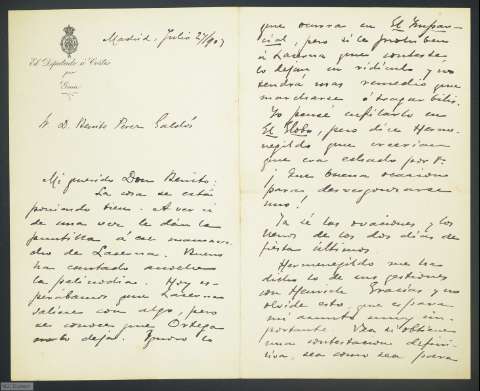 Madrid, Julio 27/907
El Diputado á Cortes
por
Gracia
Sr. D. Benito Perez Galdós
Mi querido Don Benito:
La cosa se está
poniendo bien. A ver si
de una vez le dan la
puntilla á ese
de Laserna. Bueno
ha cantado anoche
la palinodia. Hoy es-
perábamos que Laserna
saliese con algo, pero
se conoce que Ortega
no lo deja. Ignoro lo
que ocurra en El Impar-
cial, pero si le prohiben
á Laserna que conteste
lo dejan en ridículo y no
tendrá mas remedio que
marcharse ó tragar bilis.
Yo pensé enfilarlo en
El Globo, pero dice Herme-
negildo que creerian
que era echado por V.
¡Que buena ocasion
para desvergonzarse
uno!
Ya sé las ovaciones y los
llenos de los dos dias de
fiesta últimos
Hermenegildo me ha
dicho lo de sus gestiones
con Gracias, y no
olvide esto, que es para
mi asunto muy im-
portante. Vea si obtiene
una contestacion defini-
tiva, sea como sea para